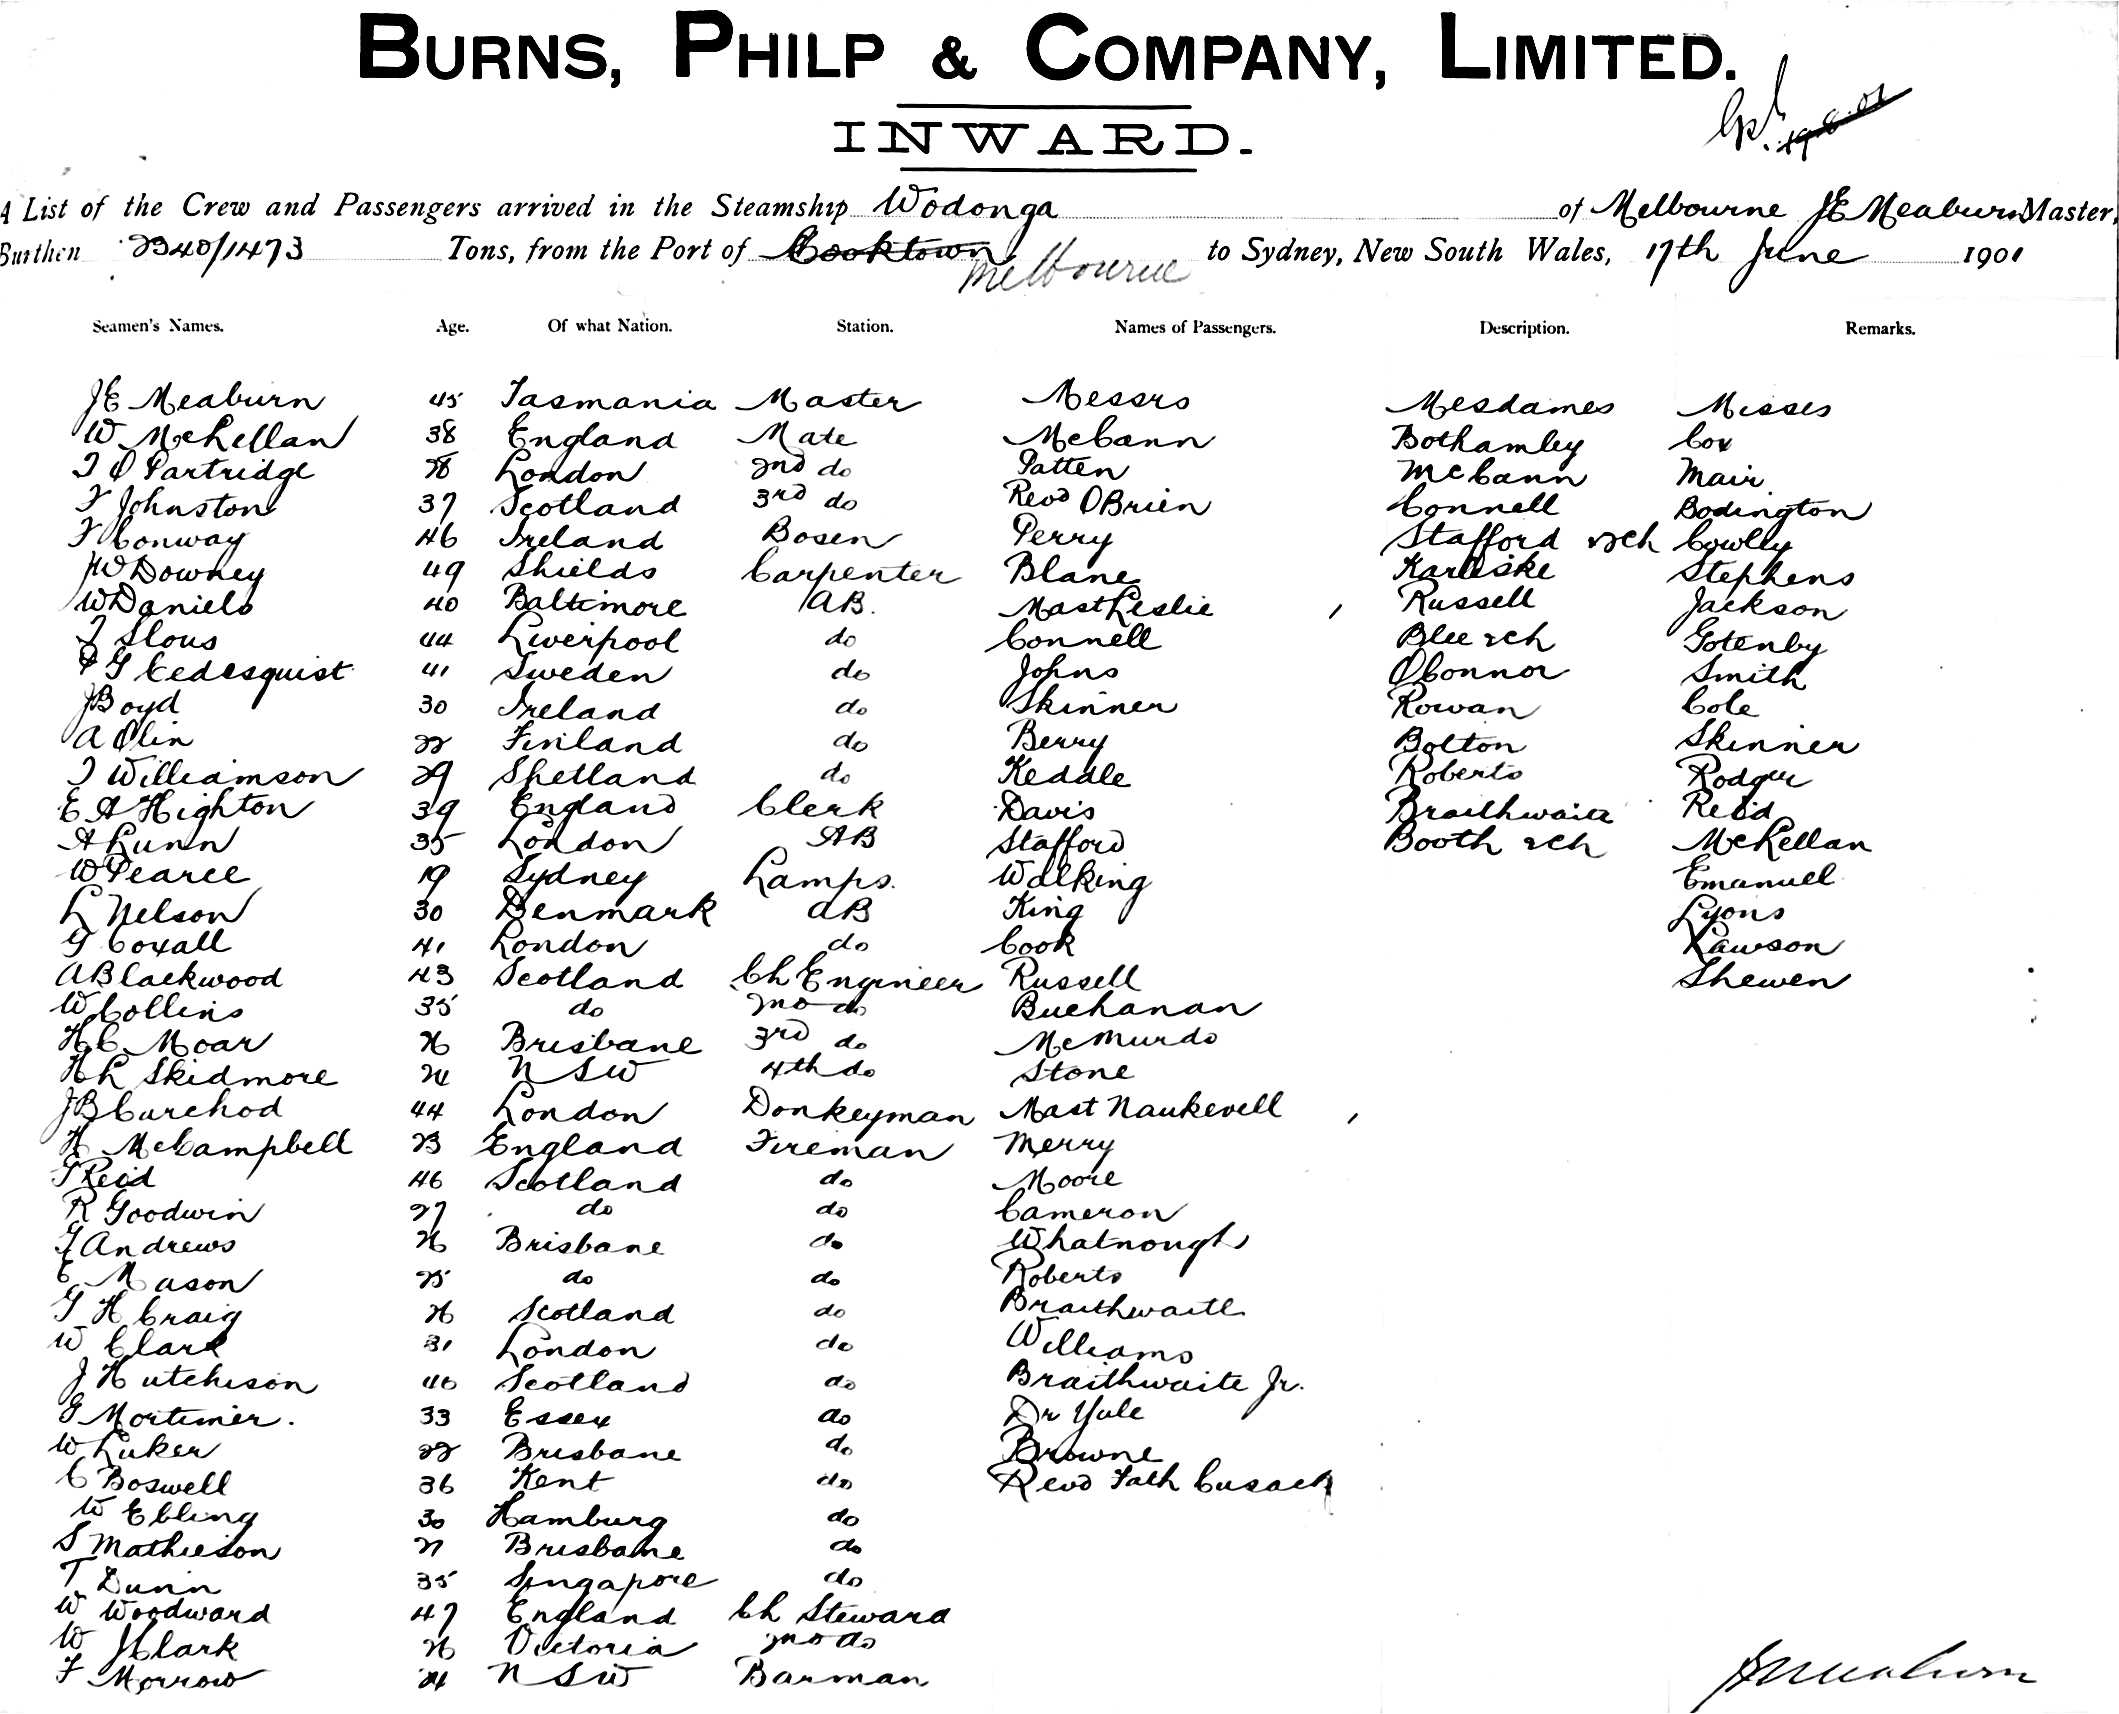 BURNS, PHILP & COMPANY, LIMITED.
INWARD.
A List of the Crew and Passengers arrived in the Steamship Wodonga of Melbourne JE Meaburn Master,
Burthen 2340/1473 Tons, from the Port of Cooktown Melbourne to Sydney, New South Wales, 17th June 1901
Seamen's Names. Age. Of what Nation. Station. Names of Passengers. Description. Remarks.
JE Meaburn 45 Tasmania Master Messrs Mesdames Misses
W McLellan 38 England Mate McCann Bothamley Cox
Partridge 28 London 2nd do Patten McCann Mair
F Johnston 37 Scotland 3rd do Revd OBrien Connell Bodington
F Conway 46 Ireland Bosen Perry Stafford 2ch Cowlly
JW Downey 49 Shields Carpenter Blane Karliske Stephens
W Daniels 40 Baltimore AB. Mast Leslie Russell Jackson
J Slous 44 Liverpool do Connell Blee 2ch Gotenby
G Cedesquist 41 Sweden do Johns OConnor Smith
J Boyd 30 Ireland do Skinner Rowan Cole
A Olin 22 Finland do Berry Bolton Skinner
J Williamson 29 Shetland do Keddle Roberts Rodger
E A Highton 39 England Clerk Davis Braithwaite Reid
A Lunn 35 London AB Stafford Booth 2ch McLellan
W Pearce 19 Sydney Lamps. Walking Emanuel
L Nelson 30 Denmark AB King Lyons
G Coxall 41 London do Cook Lawson
A Blackwood 43 Scotland Ch Engineer Russell Shewen
W Collins 35 do 2nd do Buchanan
H C Moar 26 Brisbane 3rd do McMurdo
H L Skidmore 24 NSW 4th do Stone
JB Curchod 44 London Donkeyman Mast Naukevell
H McCampbell 23 England Fireman Merry
G Reid 46 Scotland do Moore
R Goodwin 27 do do Cameron
J Andrews 26 Brisbane do Whatnough
E Mason 25 do do Roberts
G H Craig 26 Scotland do Braithwaite
W Clark 31 London do Williams
J Hutchison 40 Scotland do Braithwaite Jr.
G Mortimer. 33 Essex do Dr Yule
W Luker 22 Brisbane do Browne
C Boswell 36 Kent do Revd Fath Cusack
W Ebling 30 Hamburg do
S Mathieson 21 Brisbane do
T Dunn 35 Singapore do
W Woodward 47 England Ch Steward
W J Clark 26 Victoria 2nd do
F Morrow 24 NSW Barman
JE Meaburn